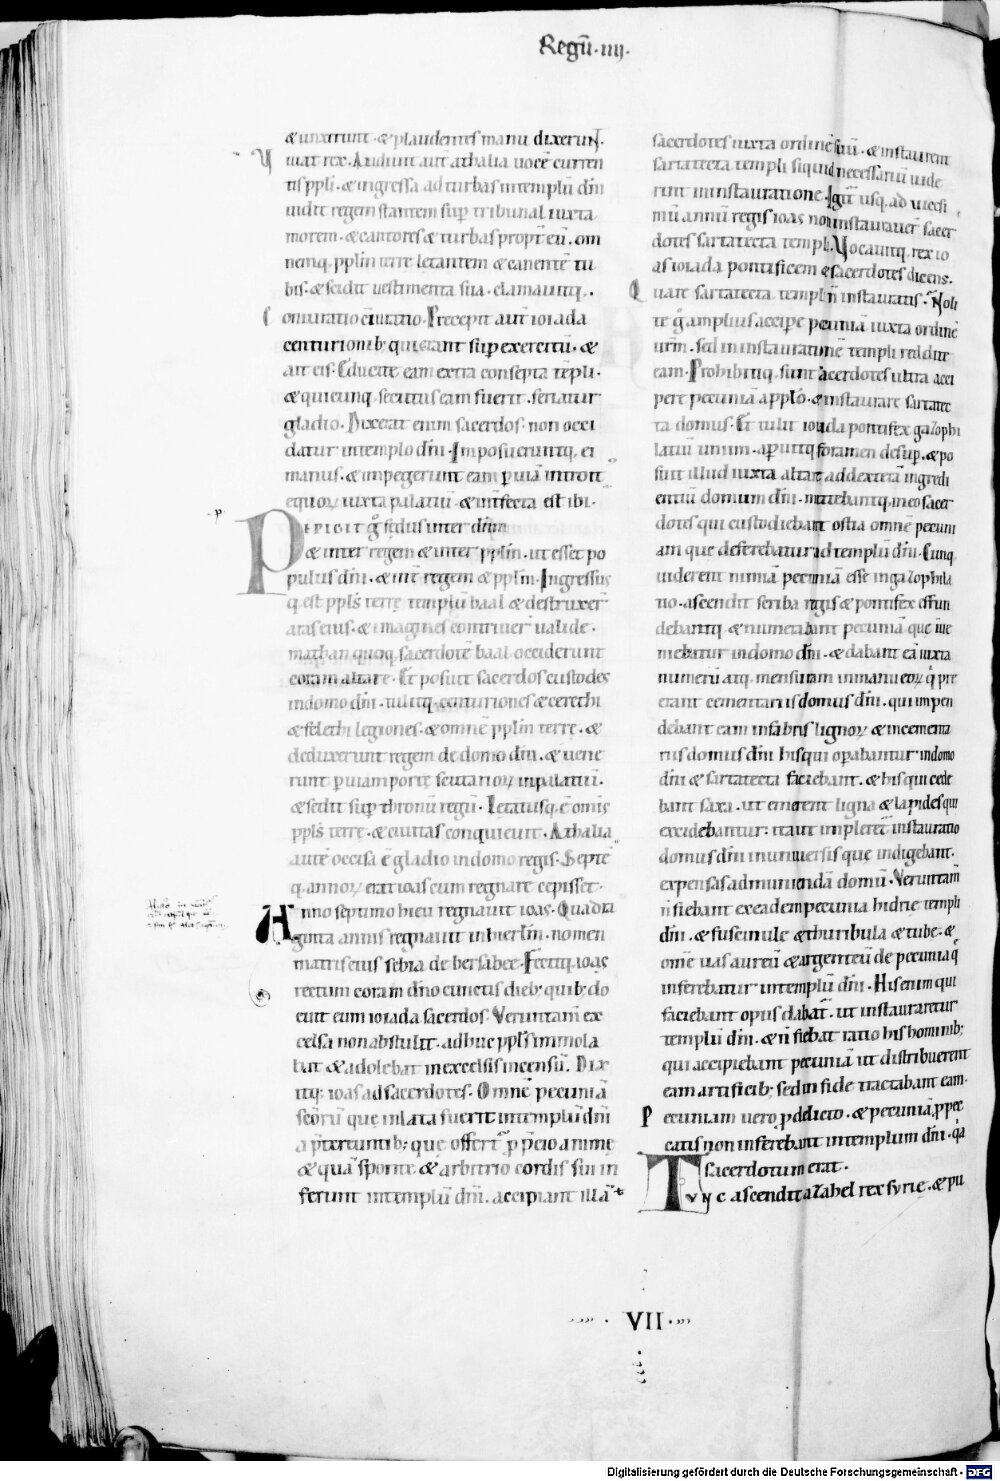 Regū·iiij·
& unxerunt·& plaudentes manu dixerunt·
Viuat rex·Audiuit aut̄ athalia uocē curren
tis ppli·& ingressa ad turbas in templū dn̄i
uidit regem stantem sup̄ tribunal iuxta
morem·& cantores & turbas propt̄ eū·om
nemq· pplm̄ terre letantem & canentē tu
bis·& scidit uestimenta sua·clamauitq·
Coniuratio cōiuratio·Precepit aut̄ ioiada
centurionib; qui erant sup̄ exercitū·&
ait eis·Educite eam extra consepta tēpli·
& quicunq· secutus eam fuerit·feriatur
gladio·Dixerat enim sacerdos·non occi
datur in templo dn̄i·Imposueruntq· ei
manus·& impegerunt eam p uiā introit
equoꝝ iuxta palatiū·& int̄fecta est ibi·
PEPIGIT g̊ fedus inter dn̄m
& inter regem & inter pplm̄·ut esset po
pulus dn̄i·& int̄ regem & pplm̄·Ingressus
q· est ppls̄ terrę templū baal & destruxer̄
aras eius·& imagines contriuer̄ ualide·
mathan quoq· sacerdotē baal occiderunt
coram altare·Et posuit sacerdos custodes
in domo dn̄i·tulitq· centuriones & cerethi
& felethi legiones·& omnē pplm̄ terrę·&
deduxerunt regem de domo dn̄i·& uene
runt p uiam portę scutarioꝝ in palatiū·
& sedit sup̄ thronū regū·Letatusq· ē omis
ppls̄ terrę·& ciuitas conquieuit·Athalia
autē occisa ē gladio in domo regis·Septē
q· annoꝝ erat ioas cum regnare cepisset·
Anno septimo hieu regnauit ioas·Quadra
ginta annis regnauit in hierlm̄·nomen
matris eius sebia de bersabee·Fecitq· ioas
rectum coram dn̄o cunctis dieb; quib; do
cuit eum ioiada sacerdos·Veruntam̄ ex
celsa non abstulit·adhuc ppls̄ immola
bat & adolebat in excelsis incensū·Dix
itq; ioas ad sacerdotes·Omnē pecuniā
sc̄orū que inlata fuerit in templū dn̄i
a p̄tereuntib; que offert̄ p p̄cio animę
& quā sponte & arbitrio cordis sui in
ferunt in templū dn̄i·accipiant illā
sacerdotes iuxta ordinē suū·& instaurent
sartatecta templi siquid necessariū uide
rint in instauratione·Igit̄ usq· ad uicesi
mū annū regis ioas non instauauer̄ sacer
dotes sartatecta templi·Vocauitq· rex io
as ioiada pontificem & sacerdotes dicens·
Quare sartatecta templi n̄ instauratis·Noli
te g̊ amplius accipe pecuniā iuxta ordinē
ur̄m·sed in instaurationē templi reddite
eam·Prohibitiq· sunt sacerdotes ultra acci
pere pecuniā a pplo·& instaurare sartatec
ta domus·Et tulit ioiada pontifex gazophi
latiū unum·ap̄uitq· foramen desup̄·& po
suit illud iuxta altare ad dexterā ingredi
entiū domum dn̄i·mittebantq; in eo sacer
dotes qui custodiebant ostia omnē pecuni
am que deferebatur ad templū dn̄i·Cunq
uiderent nimiā pecuniā esse in gazophila
tio·ascendit scriba regis & pontifex effun
debantq; & numerabant pecuniā que inue
niebatur in domo dn̄i·& dabant eā iuxta
numerū atq· mensuram in manu eoꝝ q̇ pre
erant cementariis domus dn̄i·qui impen
debant eam in fabris lignoꝝ & in cementa
riis domus dn̄i his qui opabantur in domo
dn̄i & sartatecta faciebant·& his qui cede
bant saxa·ut emerent ligna & lapides qui
excidebantur: ita ut impleret̄ instauratio
domus dn̄i in uniuersis que indigebant
expensas ad muniendā domū·Veruntam̄
n̄ fiebant ex eadem pecunia hidrie templi
dn̄i·& fuscinule & thuribula & tubę·&
omē uas aureū & argenteū de pecunia q̄
inferebatur in templū dn̄i·His enim qui
faciebant opus dabat̄·ut instauraretur
templū dn̄i·& n̄ fiebat ratio his hominib;
qui accipiebant pecuniā ut distribuerent
eam artificib; sed in fide tractabant eam·
Pecuniam uero p delicto·& pecuniā p pec
catis non inferebant in templum dn̄i·q̇a
sacerdotum erat·
TVNC ascendit azahel rex syrie·& pu
·VII·
Digitalisierung gefördert durch die Deutsche Forschungsgemeinschaft - DFG